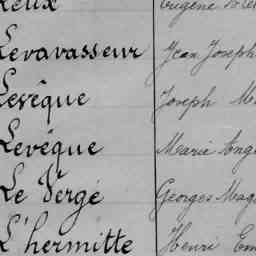 Levavasseur Jean Joseph
Levêque Joseph
Levêque Marie
Le Vergé Georges
L'hermitte Henri